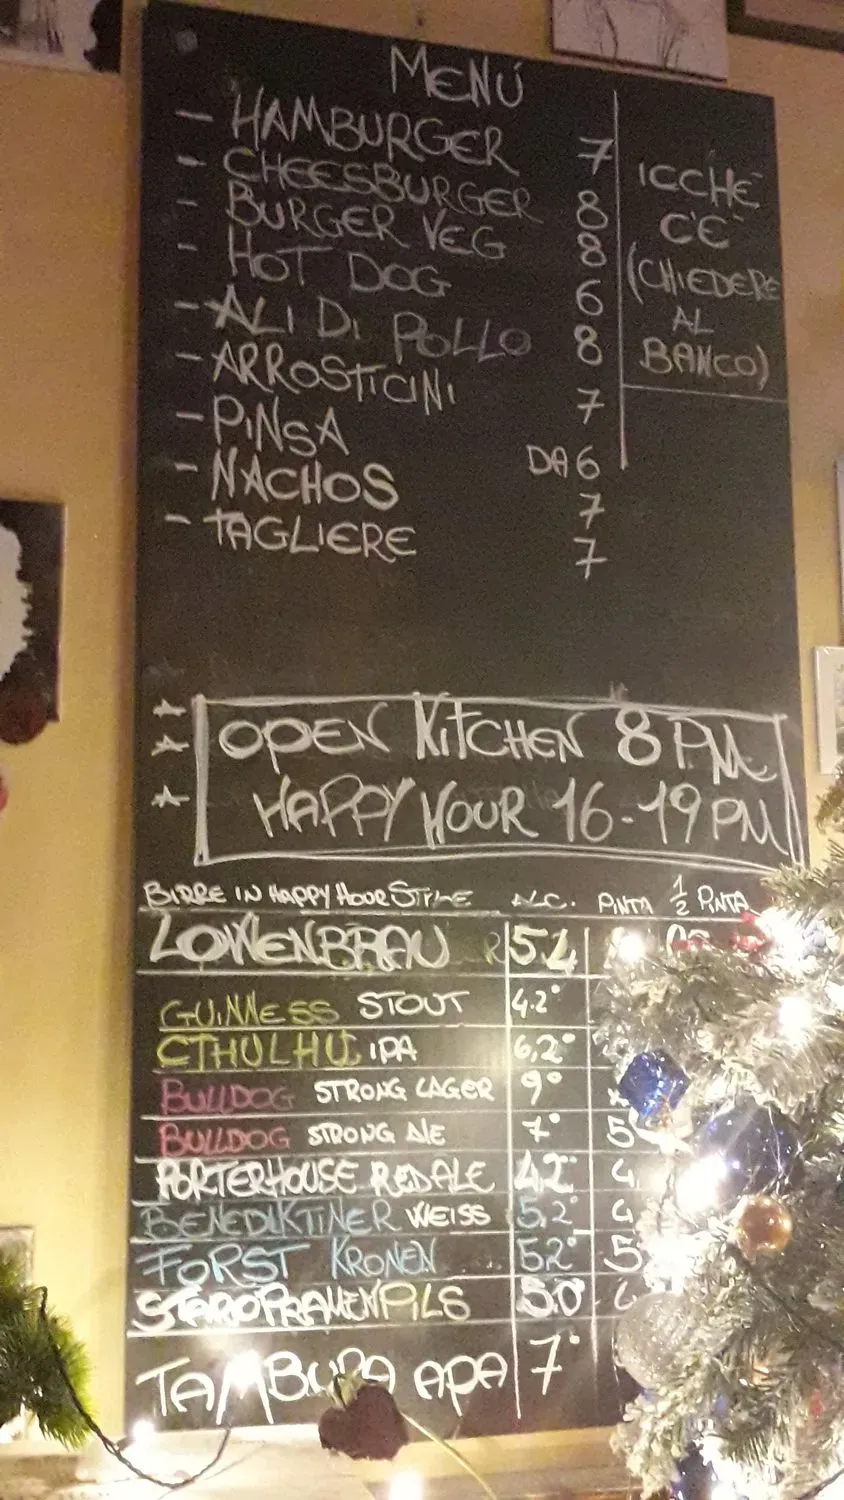 MENÚ
- HAMBURGER 7
- CHEESBURGER 8
- BURGER VEG 8
- HOT DOG 6
- ALI DI POLLO 8
- ARROSTICINI 7
- PINSA DA 6
- NACHOS 7
- TAGLIERE 7
ICCHE'
C'E'
(CHIEDERE
AL
BANCO)
OPEN KITCHEN 8 PM
HAPPY HOUR 16-19 PM
BIRRE IN HAPPY HOUR STYLE ALC. PINTA 1/2 PINTA
LOWENBRAU
GUINNESS STOUT 4.2°
CTHULHU IPA 6,2°
BULLDOG STRONG LAGER 9°
BULLDOG STRONG ALE 7° 5
PORTERHOUSE RED ALE 4.2°
BENEDIKTINER WEISS 5,2°
FORST KRONEN 5.2° 5
STAROPRAMEN PILS 5.0°
TAMBURA APA 7°